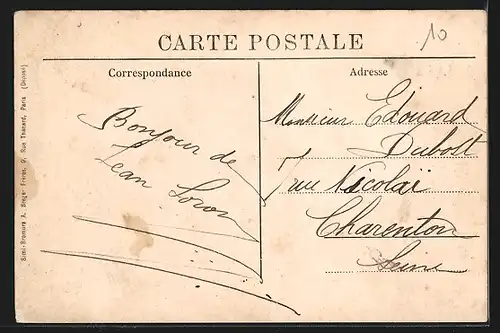 10
CARTE POSTALE
Correspondance
Adresse
Bonjour de
Jean
Monsieur Edouard
Dubost
7 rue Nicolaï
Charenton
Seine
Simi-Bromure A. Breger Frères, 9, Rue Thénard, Paris (Déposé)